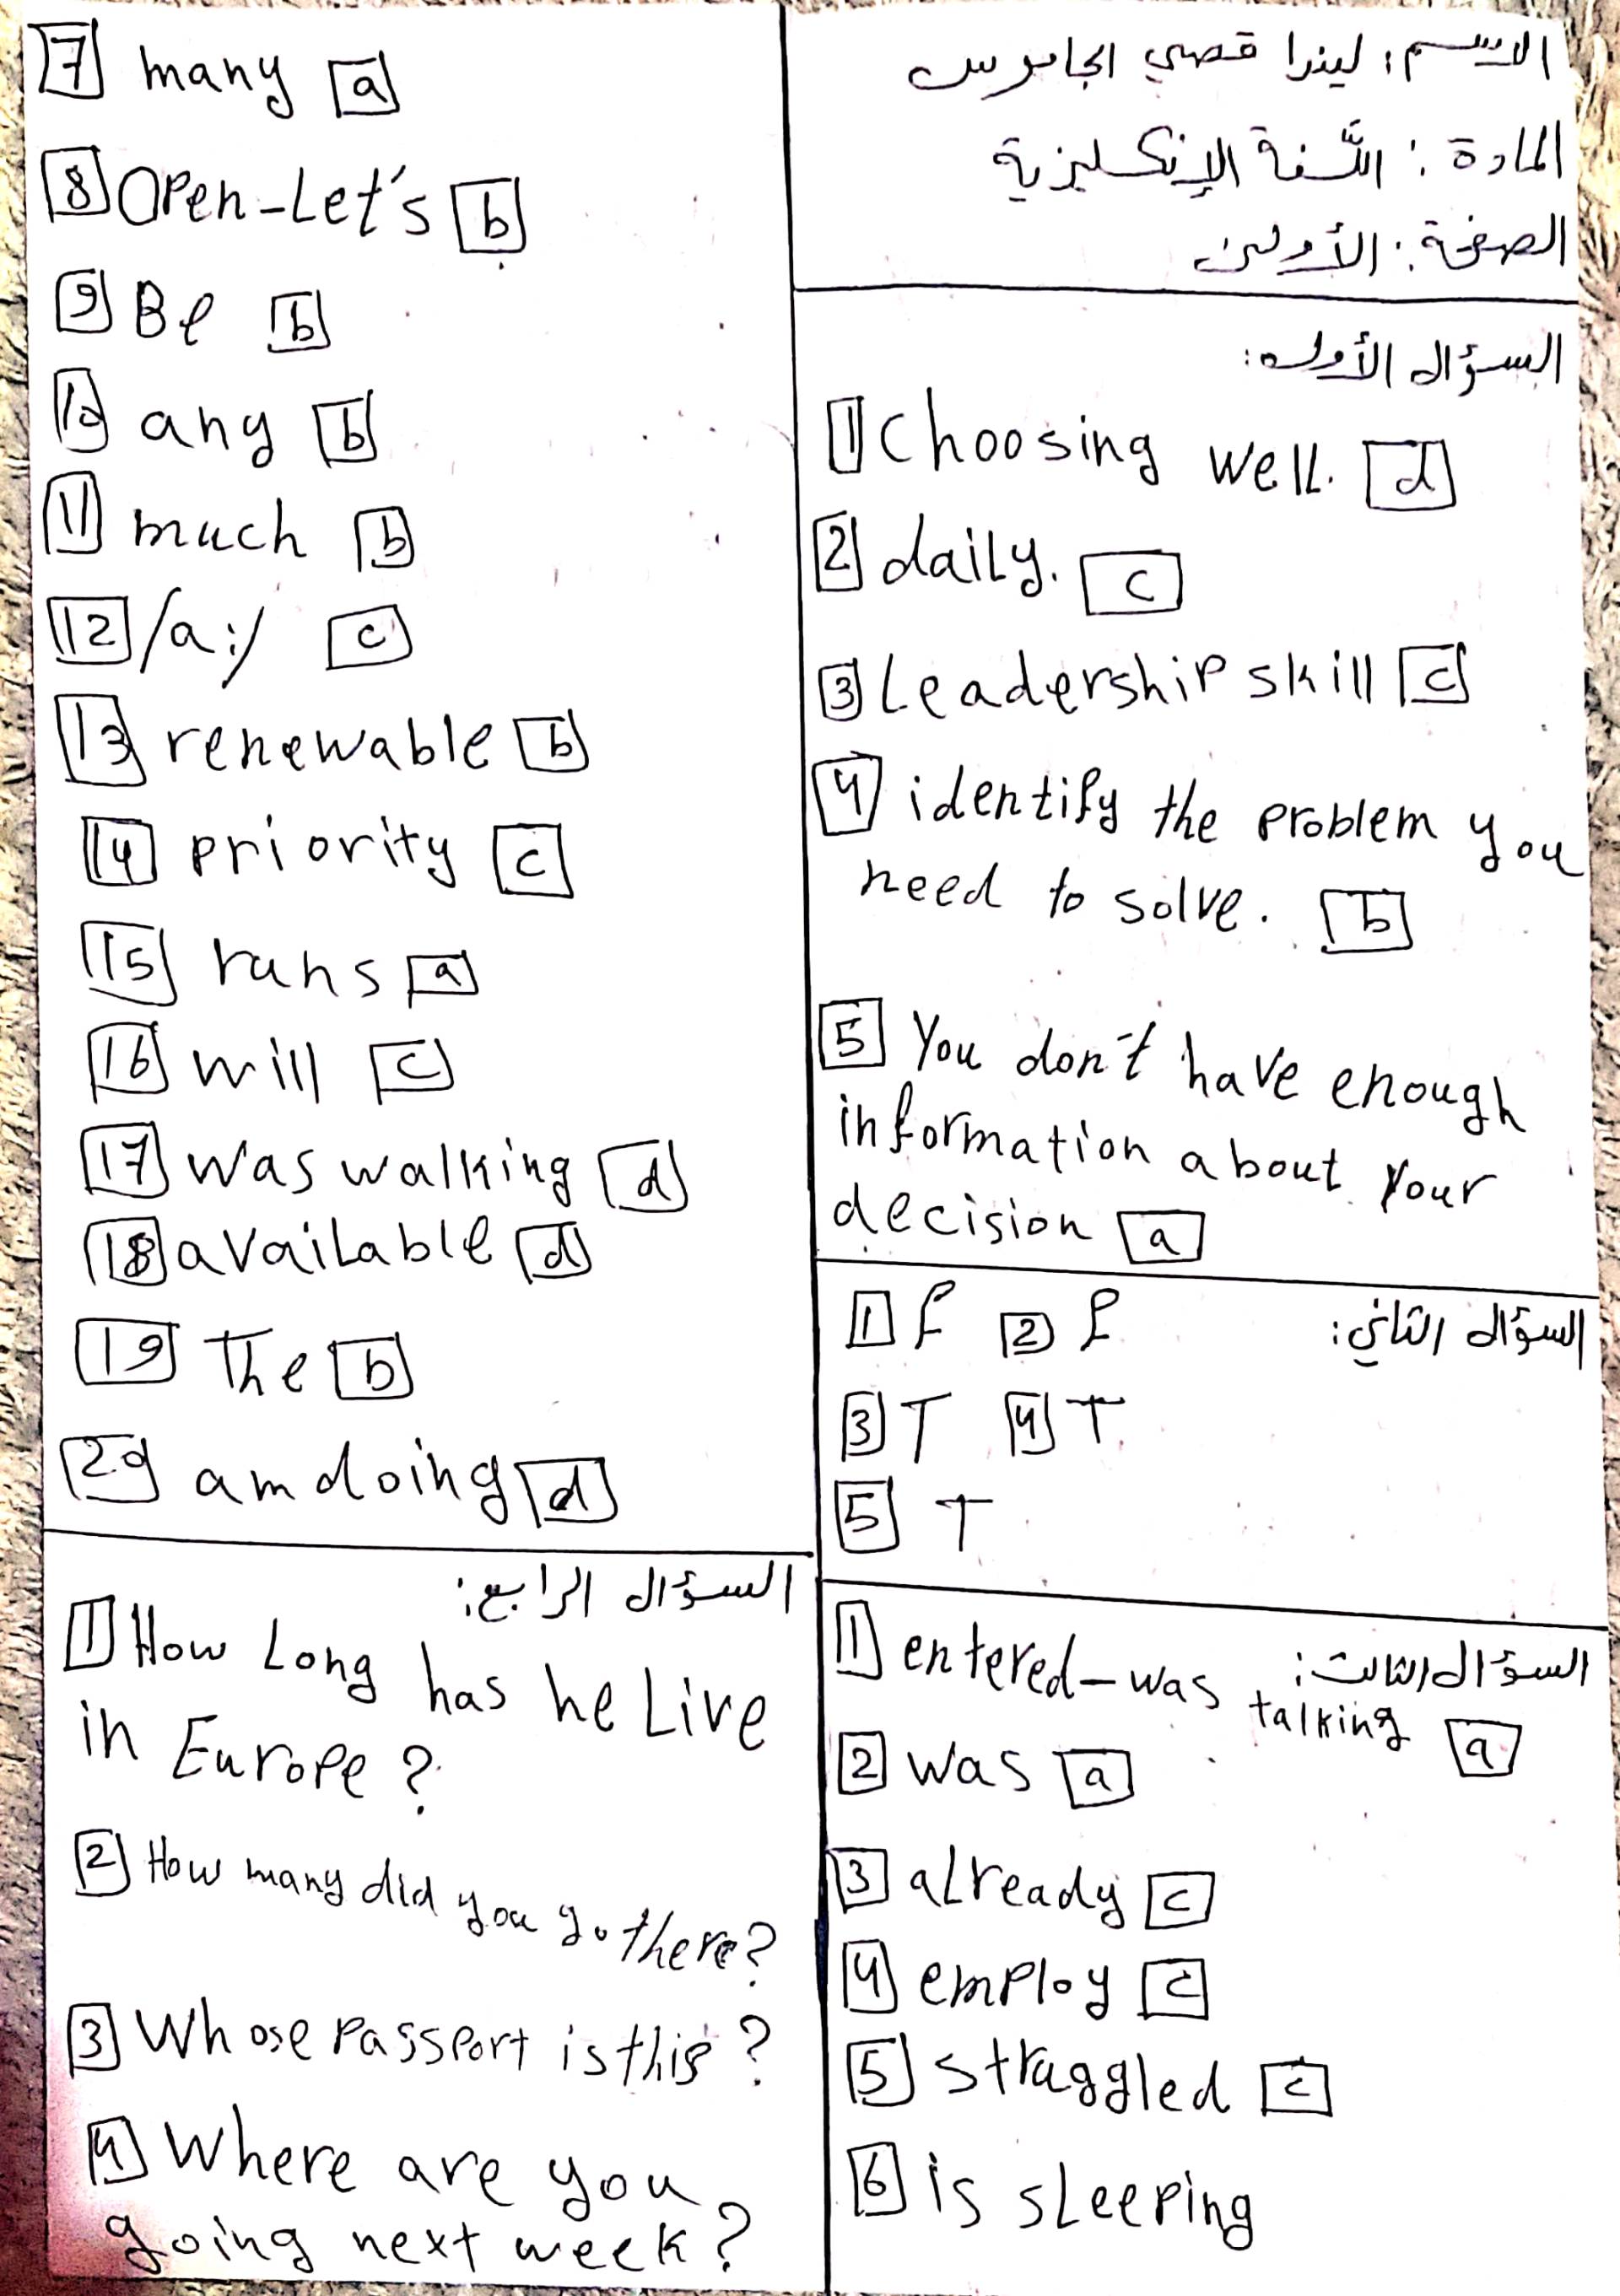 الاسم: ليندا قصي الجاموس
المادة: اللّغة الإنكليزية
الصفحة: الأولى
السؤال الأول:
1 Choosing well. d
2 daily. c
3 Leadership skill c
4 identify the problem you
need to solve. b
5 You don't have enough
information about your
decision a
السؤال الثاني:
1 f 2 f
3 T 4 T
5 T
السؤال الثالث:
1 entered-was talking a
2 was a
3 already c
4 employ c
5 struggled c
6 is sleeping
7 many a
8 Open-Let's b
9 Be b
10 any b
11 much b
12 /a:/ c
13 renewable b
14 priority c
15 runs a
16 will c
17 was walking d
18 available d
19 The b
20 am doing d
السؤال الرابع:
1 How Long has he Live
in Europe?
2 How many did you go there?
3 Whose Passport is this?
4 Where are you
going next week?